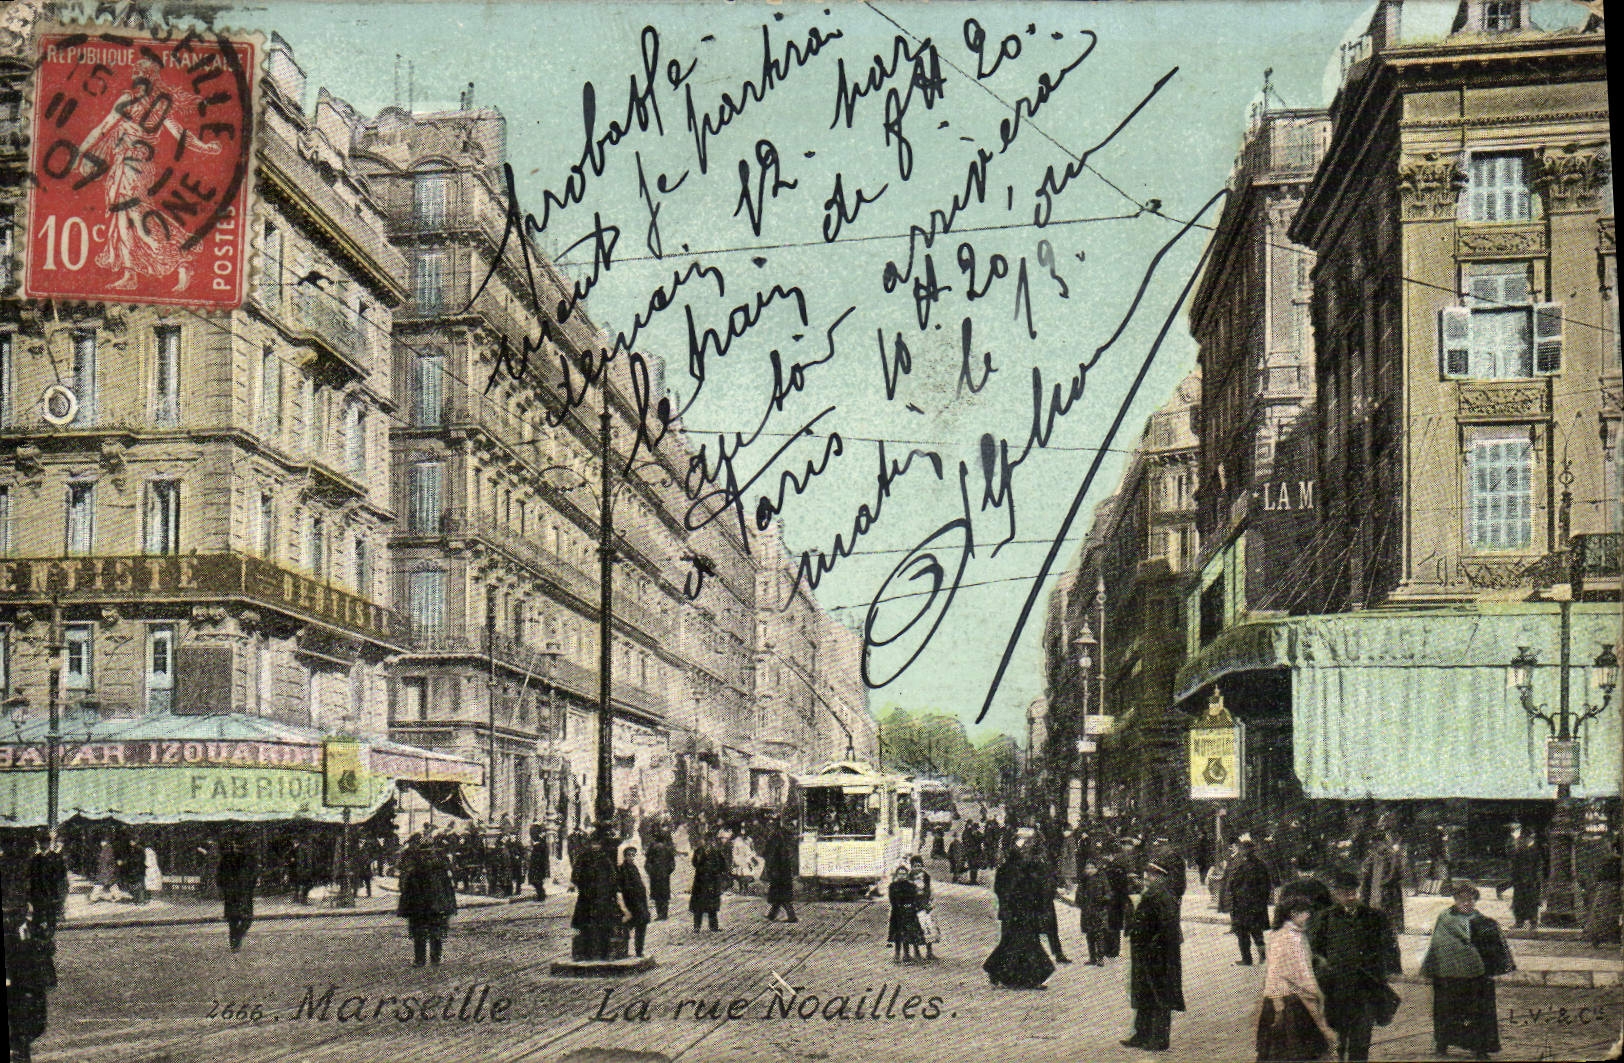 REPUBLIQUE FRANÇAISE
10c
POSTES
MARSEILLE
15 20
11
07
RHONE
probable-
ment je partirai
demain 12. par
le train de 8H 20.
qu
soir arriverai
à Paris 10H20, ou
matin le 13.
Alphons
ENTISTE
DENTISTE
BAZAR IZOUARD
FABRIQU
LA M
DE VOYAGE
2666. Marseille La rue Noailles.
L.V. & Cie